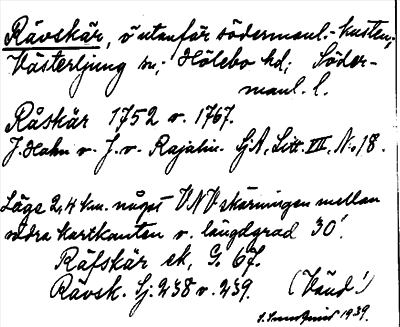 Rävskär, ö utanför södermanl.-kusten;
Västerljung sn; Hölebo hd; Söder-
manl. l.
Råskär 1752 o. 1767.
J. Hahn o. J. v. Rajalin. Sj.A, Litt. VII, No 18.
Läge 2,4 km. något VNV skärningen mellan
södra kartkanten o. längdgrad 30'.
Räfskär ek. G. 67.
Rävsk. Sj. 238 o. 239. (Vänd!)
1939.